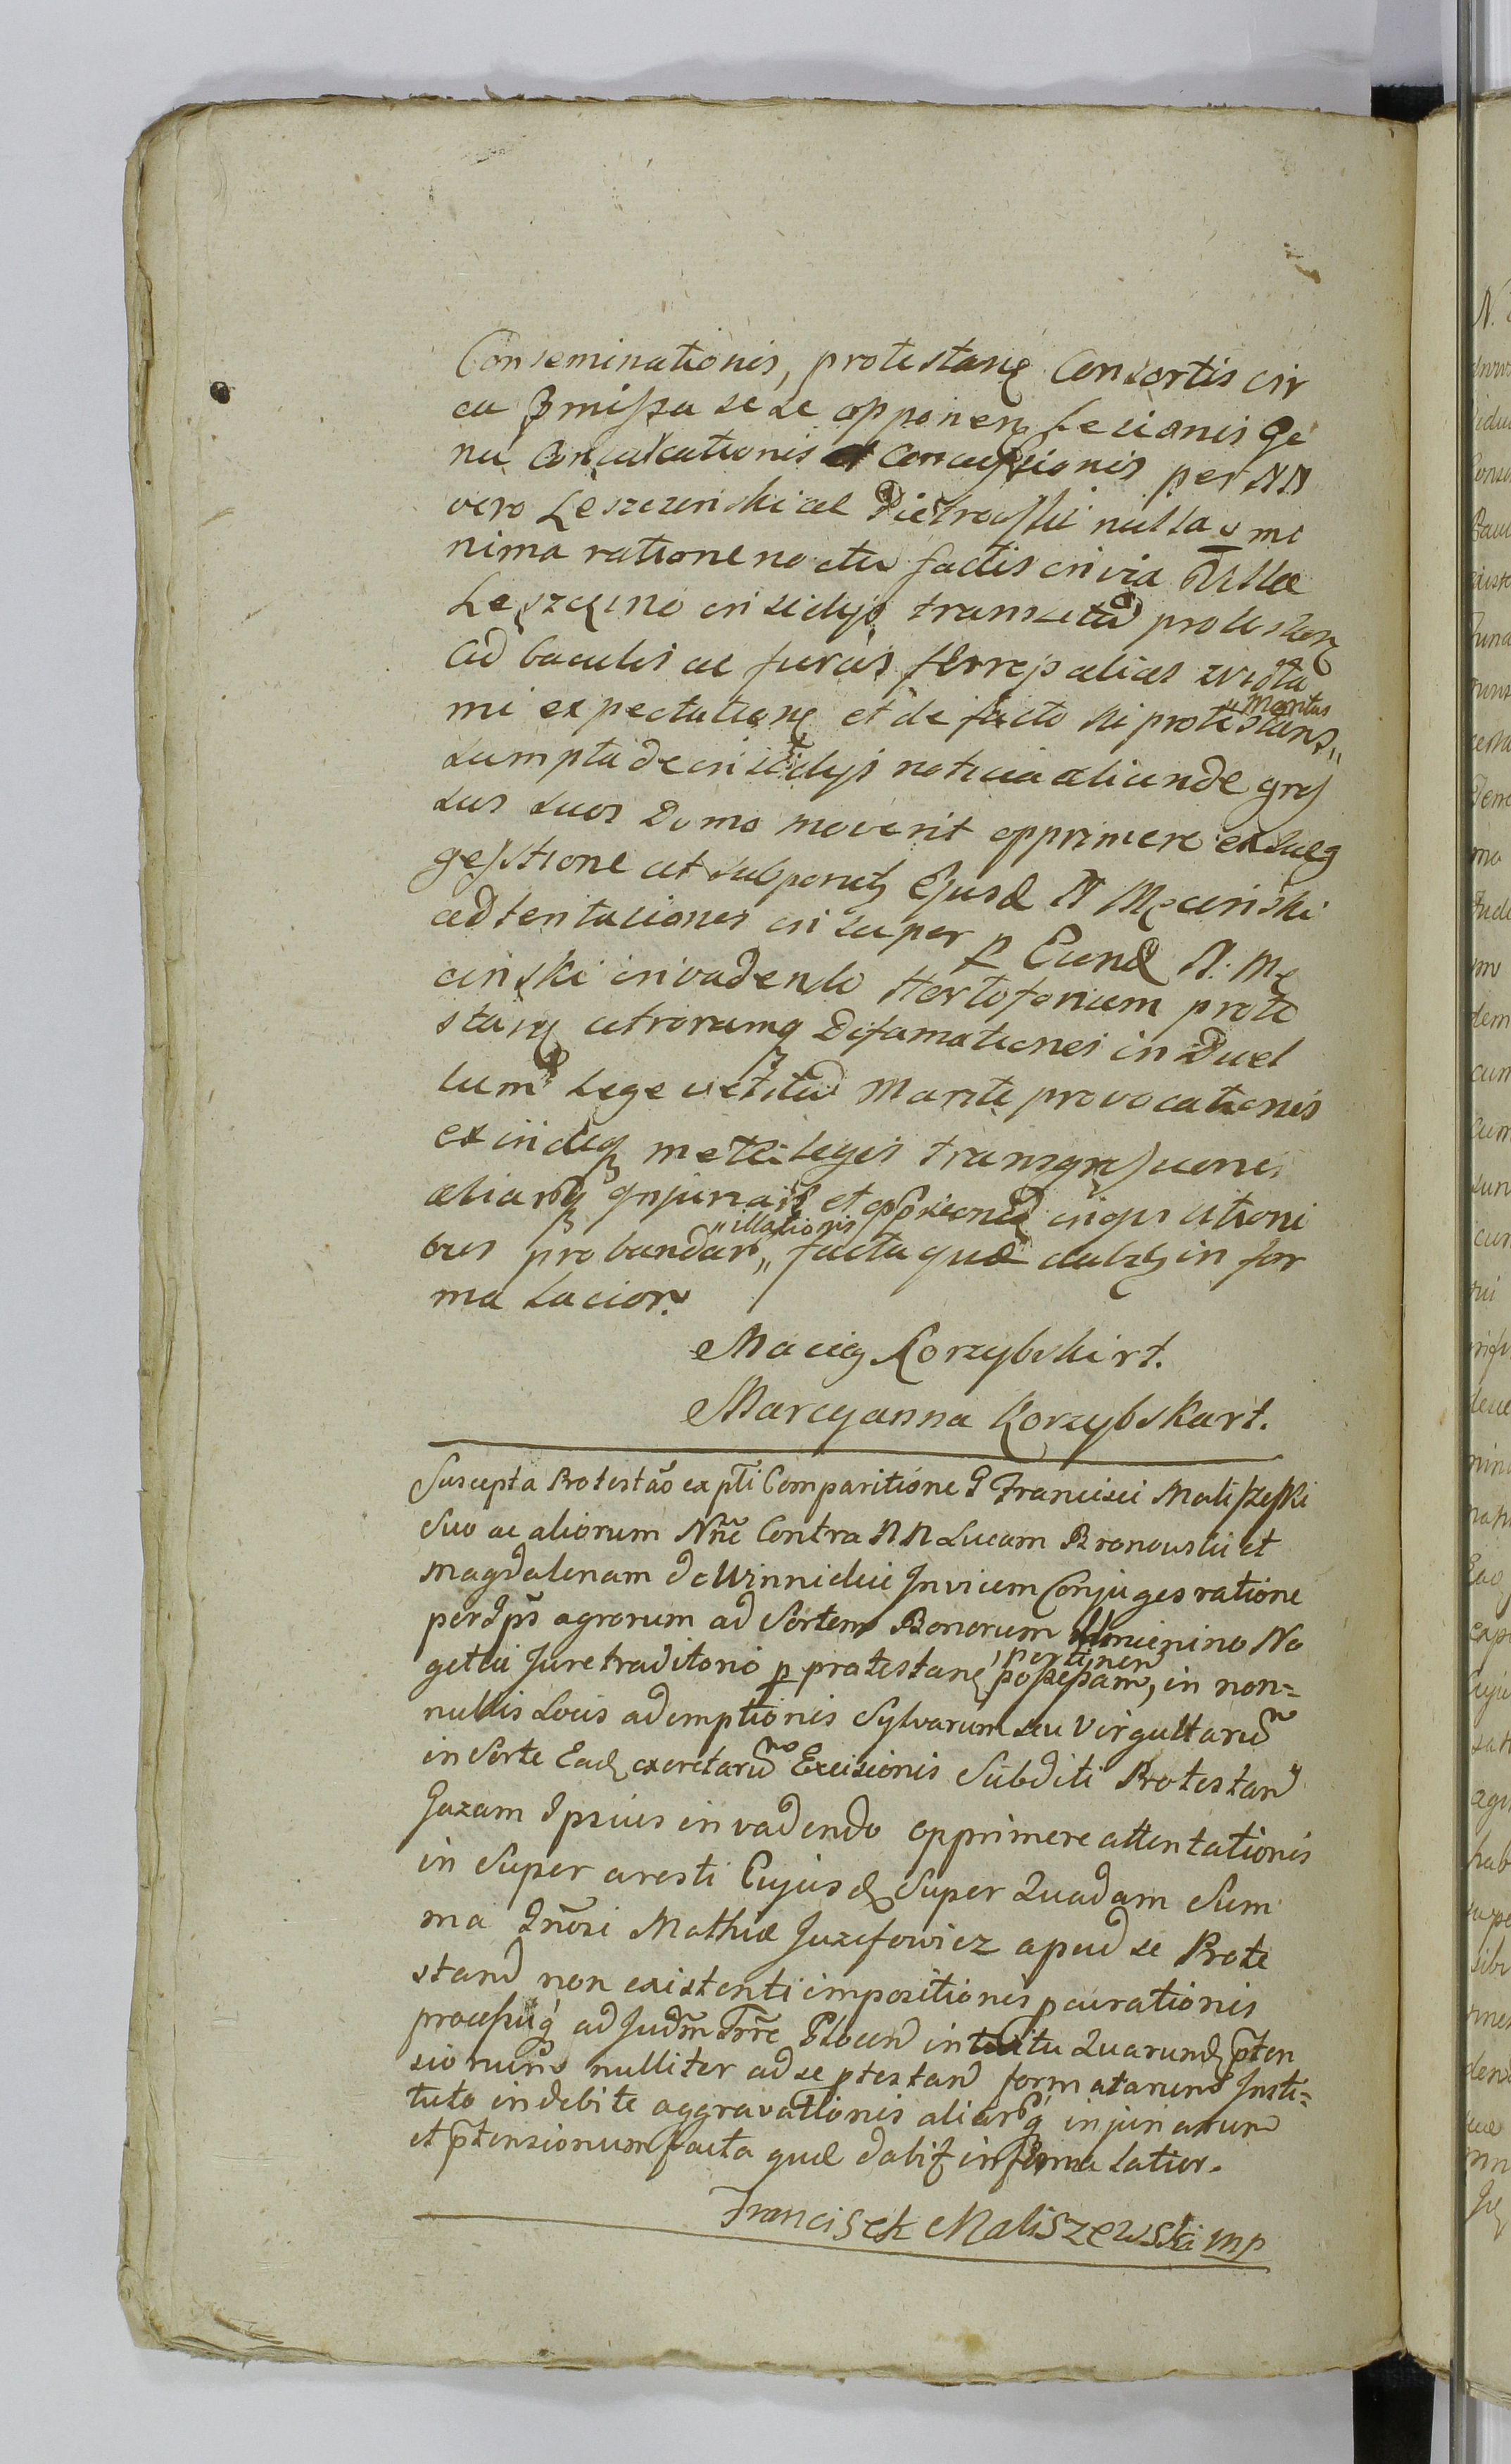 Conseminationis, protestanꝭ Consortis cir
ca Pmissa se se opponenꝭ Lesionis Ge
nu Conculcationis et Concussionis per NN
vero Leszczinski ac Pietrowski nulla mi
nima ratione noctu factis in via Villæ
Leszczyno insidys transeund protestanꝭ
cD baculis ac furcis ferreis alias widła
mi expectatione et de facto ni protestans „Maritus„
sumpta de insidys noticia aliunde gres
sus suos Domo moverit opprimere ex sug
gestione at subponenꝭ Ejusd N Mecinski
adtentationes insuper p Eund N. Me
cinski invadendo Hortoforium prote
stanꝭ utrorumq Difamationei in Duel
lum Lege vetitu Mariti provocationis
exindeq metæ legis transgressionei
aliarq Injuriarū et oppsionū inquisitioni
bus probandar „illationis„ facta quæ dabit in for
ma Lacior.
Maciej Korzybski rt.
Maryanna Korzybska rt.
Suscepta Protestao ex pti Comparitione G Francisci Maliszeski
suo ac aliorum Nne Contra NN Lucam Bronouski et
Magdalenam de Winnickie Invicem Conjuges ratione
per Ips agrorum ad Sortem Bonorum Umienino No
getki Jure traditorio p protestanꝭ possessam, pertinen in non=
nullis Locis ademptionis Sylvarum seu Virgultarū
in Sorte Ead exoretarū Excisionis Subditi Protestan
Gazam Ipsius invadendo opprimere attentationis
in Super aresti Cujusd Super Quadam Sum
ma Gnosi Mathiæ Juzefowicz apud se Prote
stand non existenti impositionis pcurationis
processuq ad Judm Trre Plocen intuitu Quarund pten
sionum nulliter ad se ptestand formatarum Insti=
tuto indebite aggravationis aliarq injuriarum
et ptensionum facta quæ dabit in forma latior.
Franciszek Maliszewski mp